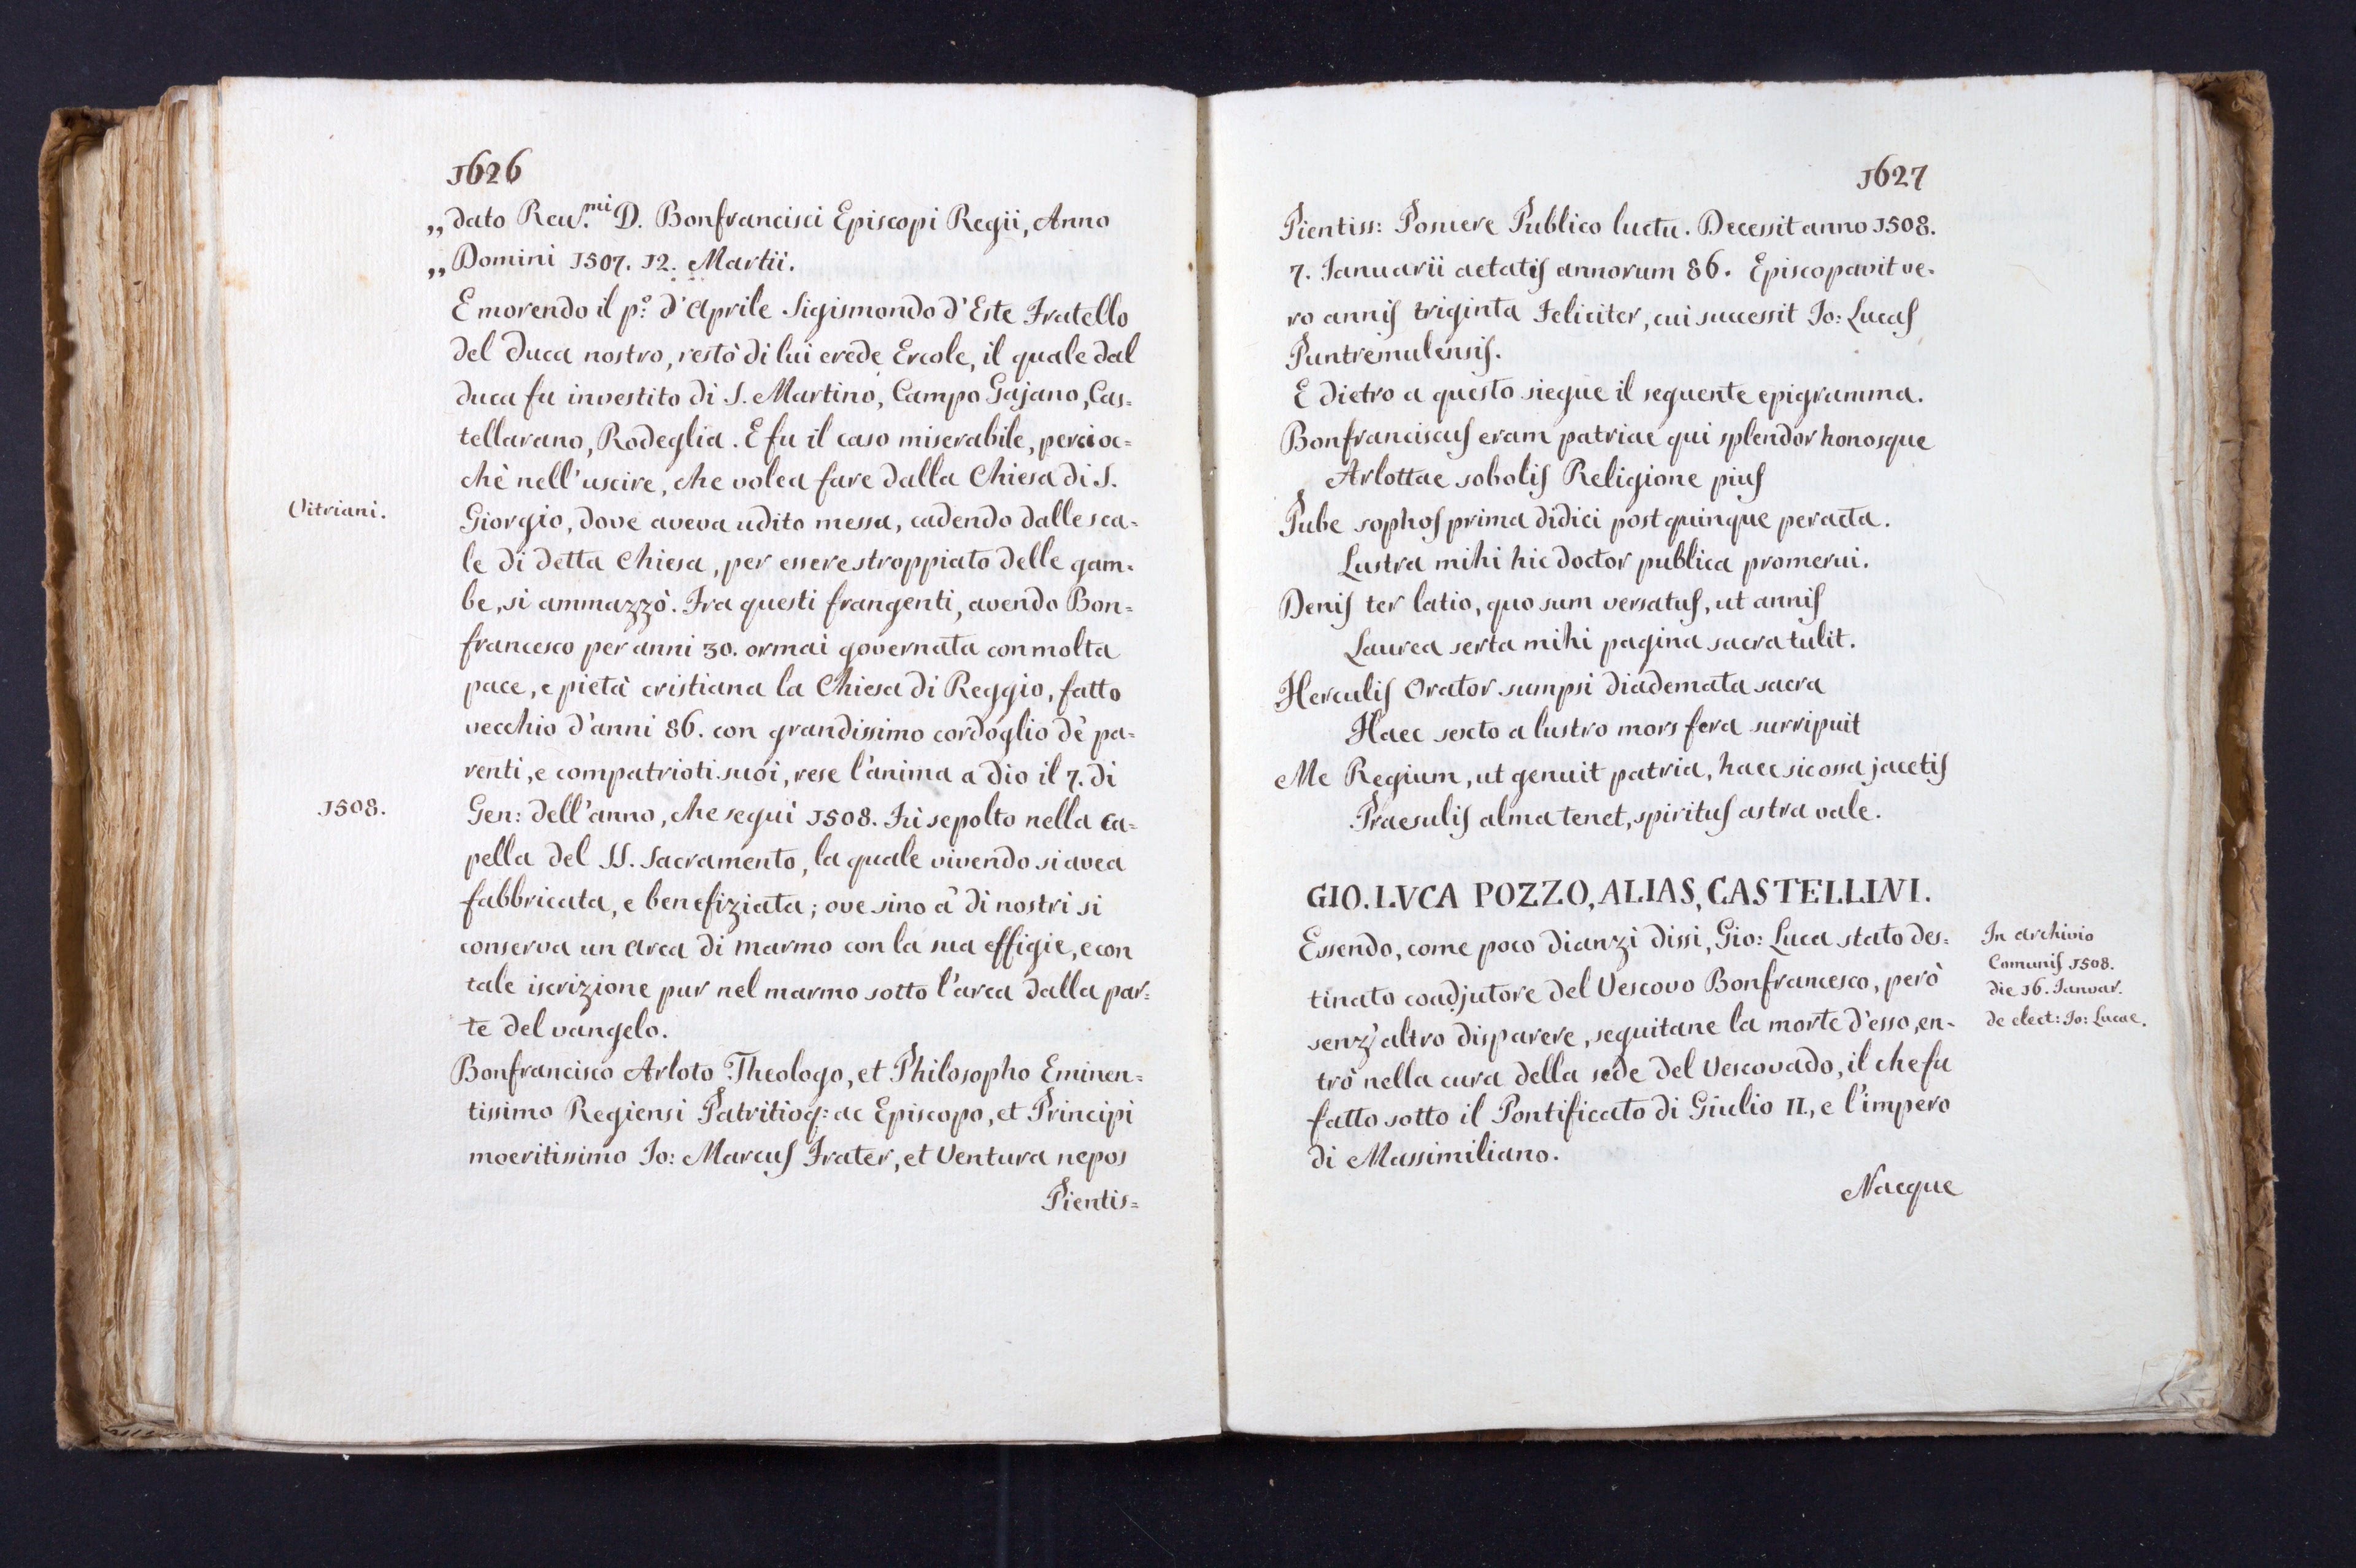 1626
„dato Reu.mi D. Bonfrancisci Episcopi Regii, Anno
„Domini 1507. 12. Martii.
E morendo il p.o d'Aprile Sigismondo d'Este Fratello
del Duca nostro, restò di lui erede Ercole, il quale dal
Duca fu investito di S. Martino, Campo Gajano, Cas=
tellarano, Rodeglia. E fu il caso miserabile, percioc=
chè nell'uscire, che volea fare dalla Chiesa di S.
Vitriani.
Giorgio, dove aveva udito messa, cadendo dalle sca=
le di detta Chiesa, per essere stroppiato delle gam=
be, si ammazzò. Fra questi frangenti, avendo Bon=
francesco per anni 30. ormai governata con molta
pace, e pietà cristiana la Chiesa di Reggio, fatto
vecchio d'anni 86. con grandissimo cordoglio de' pa=
renti, e compatrioti suoi, rese l'anima a Dio il 7. di
1508.
Gen: dell'anno, che seguì 1508. Fù sepolto nella ca=
pella del SS. Sacramento, la quale vivendo si avea
fabbricata, e benefiziata; ove sino a' dì nostri si
conserva un arca di marmo con la sua effigie, e con
tale iscrizione pur nel marmo sotto l'arca dalla par=
te del vangelo.
Bonfrancisco Arloto Theologo, et Philosopho Eminen=
tissimo Regiensi Patritioq: ac Episcopo, et Principi
moeritissimo Io: Marcus Frater, et Ventura nepos
Pientis=
1627
Pientiss: Posuere Publico luctu. Decessit anno 1508.
7. Ianuarii aetatis annorum 86. Episcopavit ve=
ro annis triginta Feliciter, cui successit Io: Lucas
Puntremulensis.
E dietro a questo siegue il seguente epigramma.
Bonfranciscus eram patriae qui splendor honosque
Arlottae sobolis Religione pius
Pube sophos prima didici post quinque peracta.
Lustra mihi hic doctor publica promerui.
Denis ter latio, quo sum versatus, ut annis
Laurea serta mihi pagina sacra tulit.
Herculis Orator sumpsi diademata sacra
Haec sexto a lustro mors fera surripuit
Me Regium, ut genuit patria, haec sic ossa jacetis
Praesulis alma tenet, spiritus astra vale.
GIO. LVCA POZZO, ALIAS, CASTELLINI.
Essendo, come poco dianzi dissi, Gio: Luca stato des=
tinato coadjutore del Vescovo Bonfrancesco, però
senz'altro disparere, seguitane la morte d'esso, en=
trò nella cura della sede del Vescovado, il che fu
fatto sotto il Pontificato di Giulio II., e l'impero
di Massimiliano.
In archivio
Comunis 1508.
die 16. Ianuar.
de elect: Io: Lucae.
Nacque